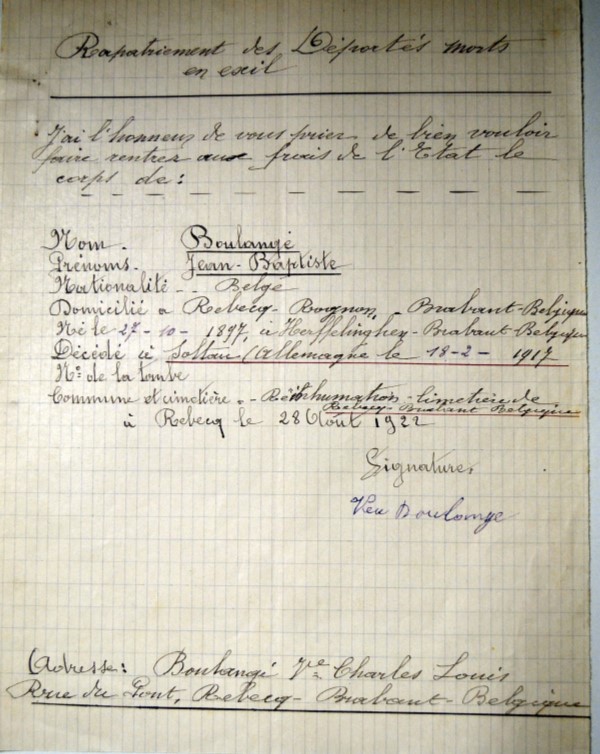 Rapatriement des Déportés morts
en exil
J'ai l'honneur de vous prier de bien vouloir
faire rentrer aux frais de l'Etat le
corps de:
Nom. Boulangé
Prénoms. Jean-Baptiste
Nationalité - - Belge
Domicilié à Rebecq-Rognon, - Brabant-Belgique
Né le 27-10-1897, à Herffelinghen-Brabant-Belgique
Décédé à Soltau (Allemagne le 18-2-1917
No de la tombe
Commune et cimetière. - Réinhumation-Cimetière de
Rebecq-Brabant Belgique
à Rebecq le 28 Août 1922
Signature,
Vve Boulange
(Adresse: Boulangé Vve Charles Louis
Rue du Pont, Rebecq-Brabant-Belgique